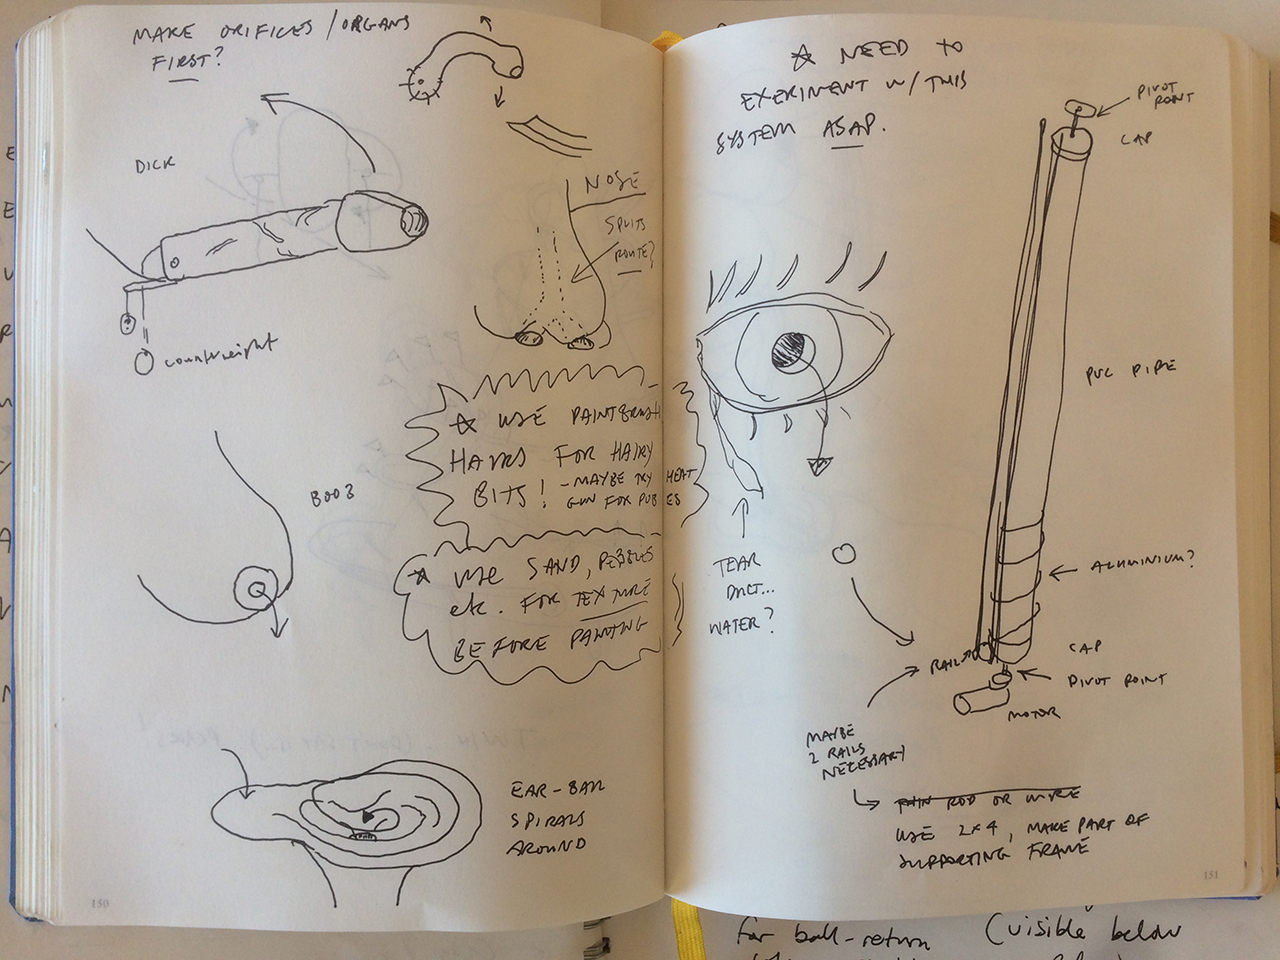 MAKE ORIFICES / ORGANS
FIRST?
DICK
counterweight
NOSE
SPLITS
ROUTE?
BOOB
☆ USE PAINTBRUSH
HAIRS FOR HAIRY
BITS! - MAYBE TRY HEAT
GUN FOR PUBES
☆ USE SAND, PEBBLES
etc. FOR TEXTURE
BEFORE PAINTING
EAR-BALL
SPIRALS
AROUND
150
☆ NEED TO
EXERIMENT W/ THIS
SYSTEM ASAP.
PIVOT
POINT
CAP
PVC PIPE
TEAR
DUCT...
WATER?
ALUMINIUM?
RAIL
CAP
PIVOT POINT
MOTOR
MAYBE
2 RAILS
NECESSARY
THIN ROD OR WIRE
USE 2x4, MAKE PART OF
SUPPORTING FRAME
151
for ball-return (visible below